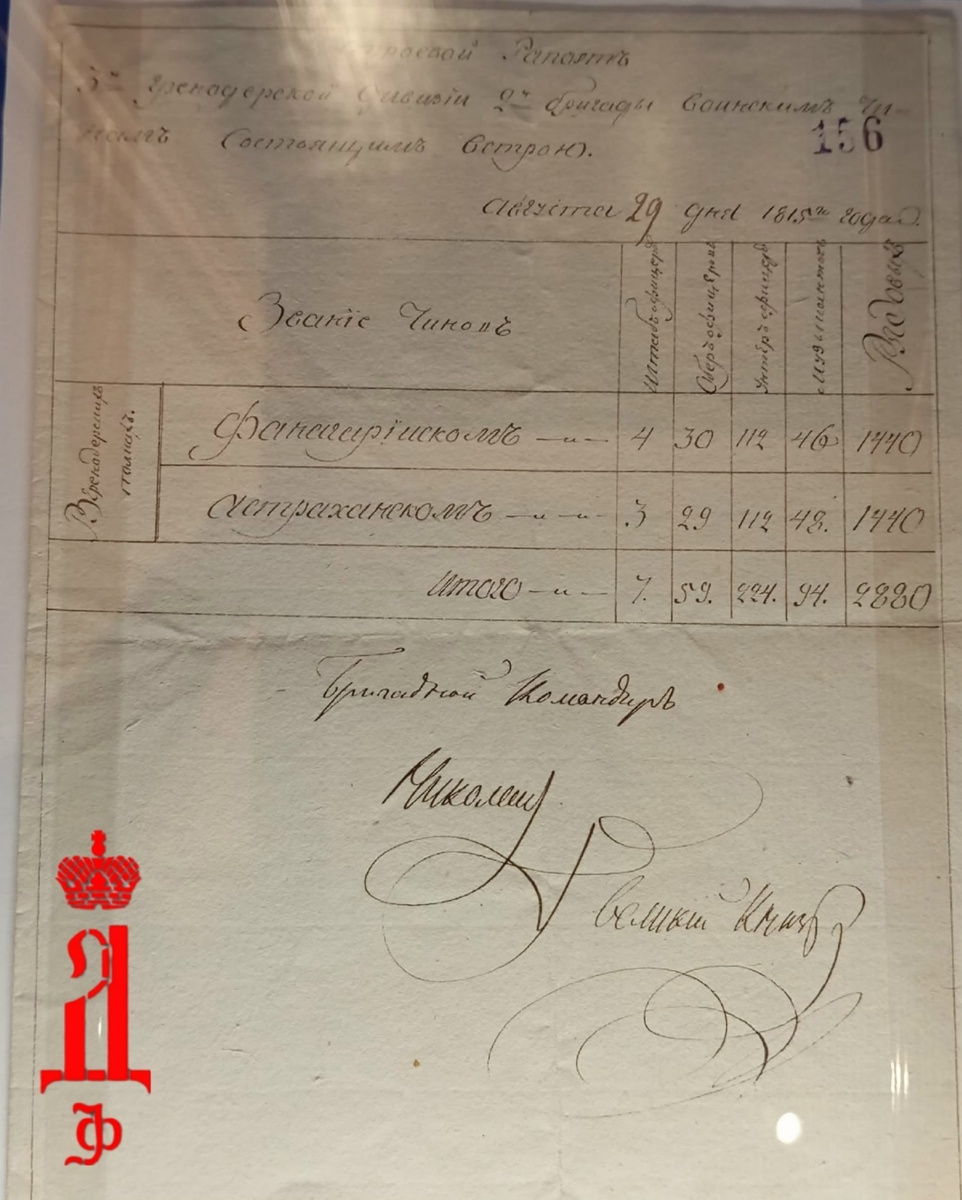 Строевой Рапортъ
3й Гренадерской дивизіи 2й бригады воинскимъ чи-
намъ состоящимъ встрою.
156
Августа 29 дня 1815го года.
Званіе Чиновъ
Штабъ офицеръ
Оберъ офицеръ
Унтеръ офицеръ
Музыкантовъ
Рядовыхъ
Вгренадерскихъ
полкахъ.
Фанагаріискомъ — „ — 4 30 112 46 1440
Астраханскомъ — „ — „ — 3 29 112 48. 1440
Итого — „ — 7. 59. 224. 94. 2880
Бригадной Командиръ
Николай
Великій Князь
Д
Ф